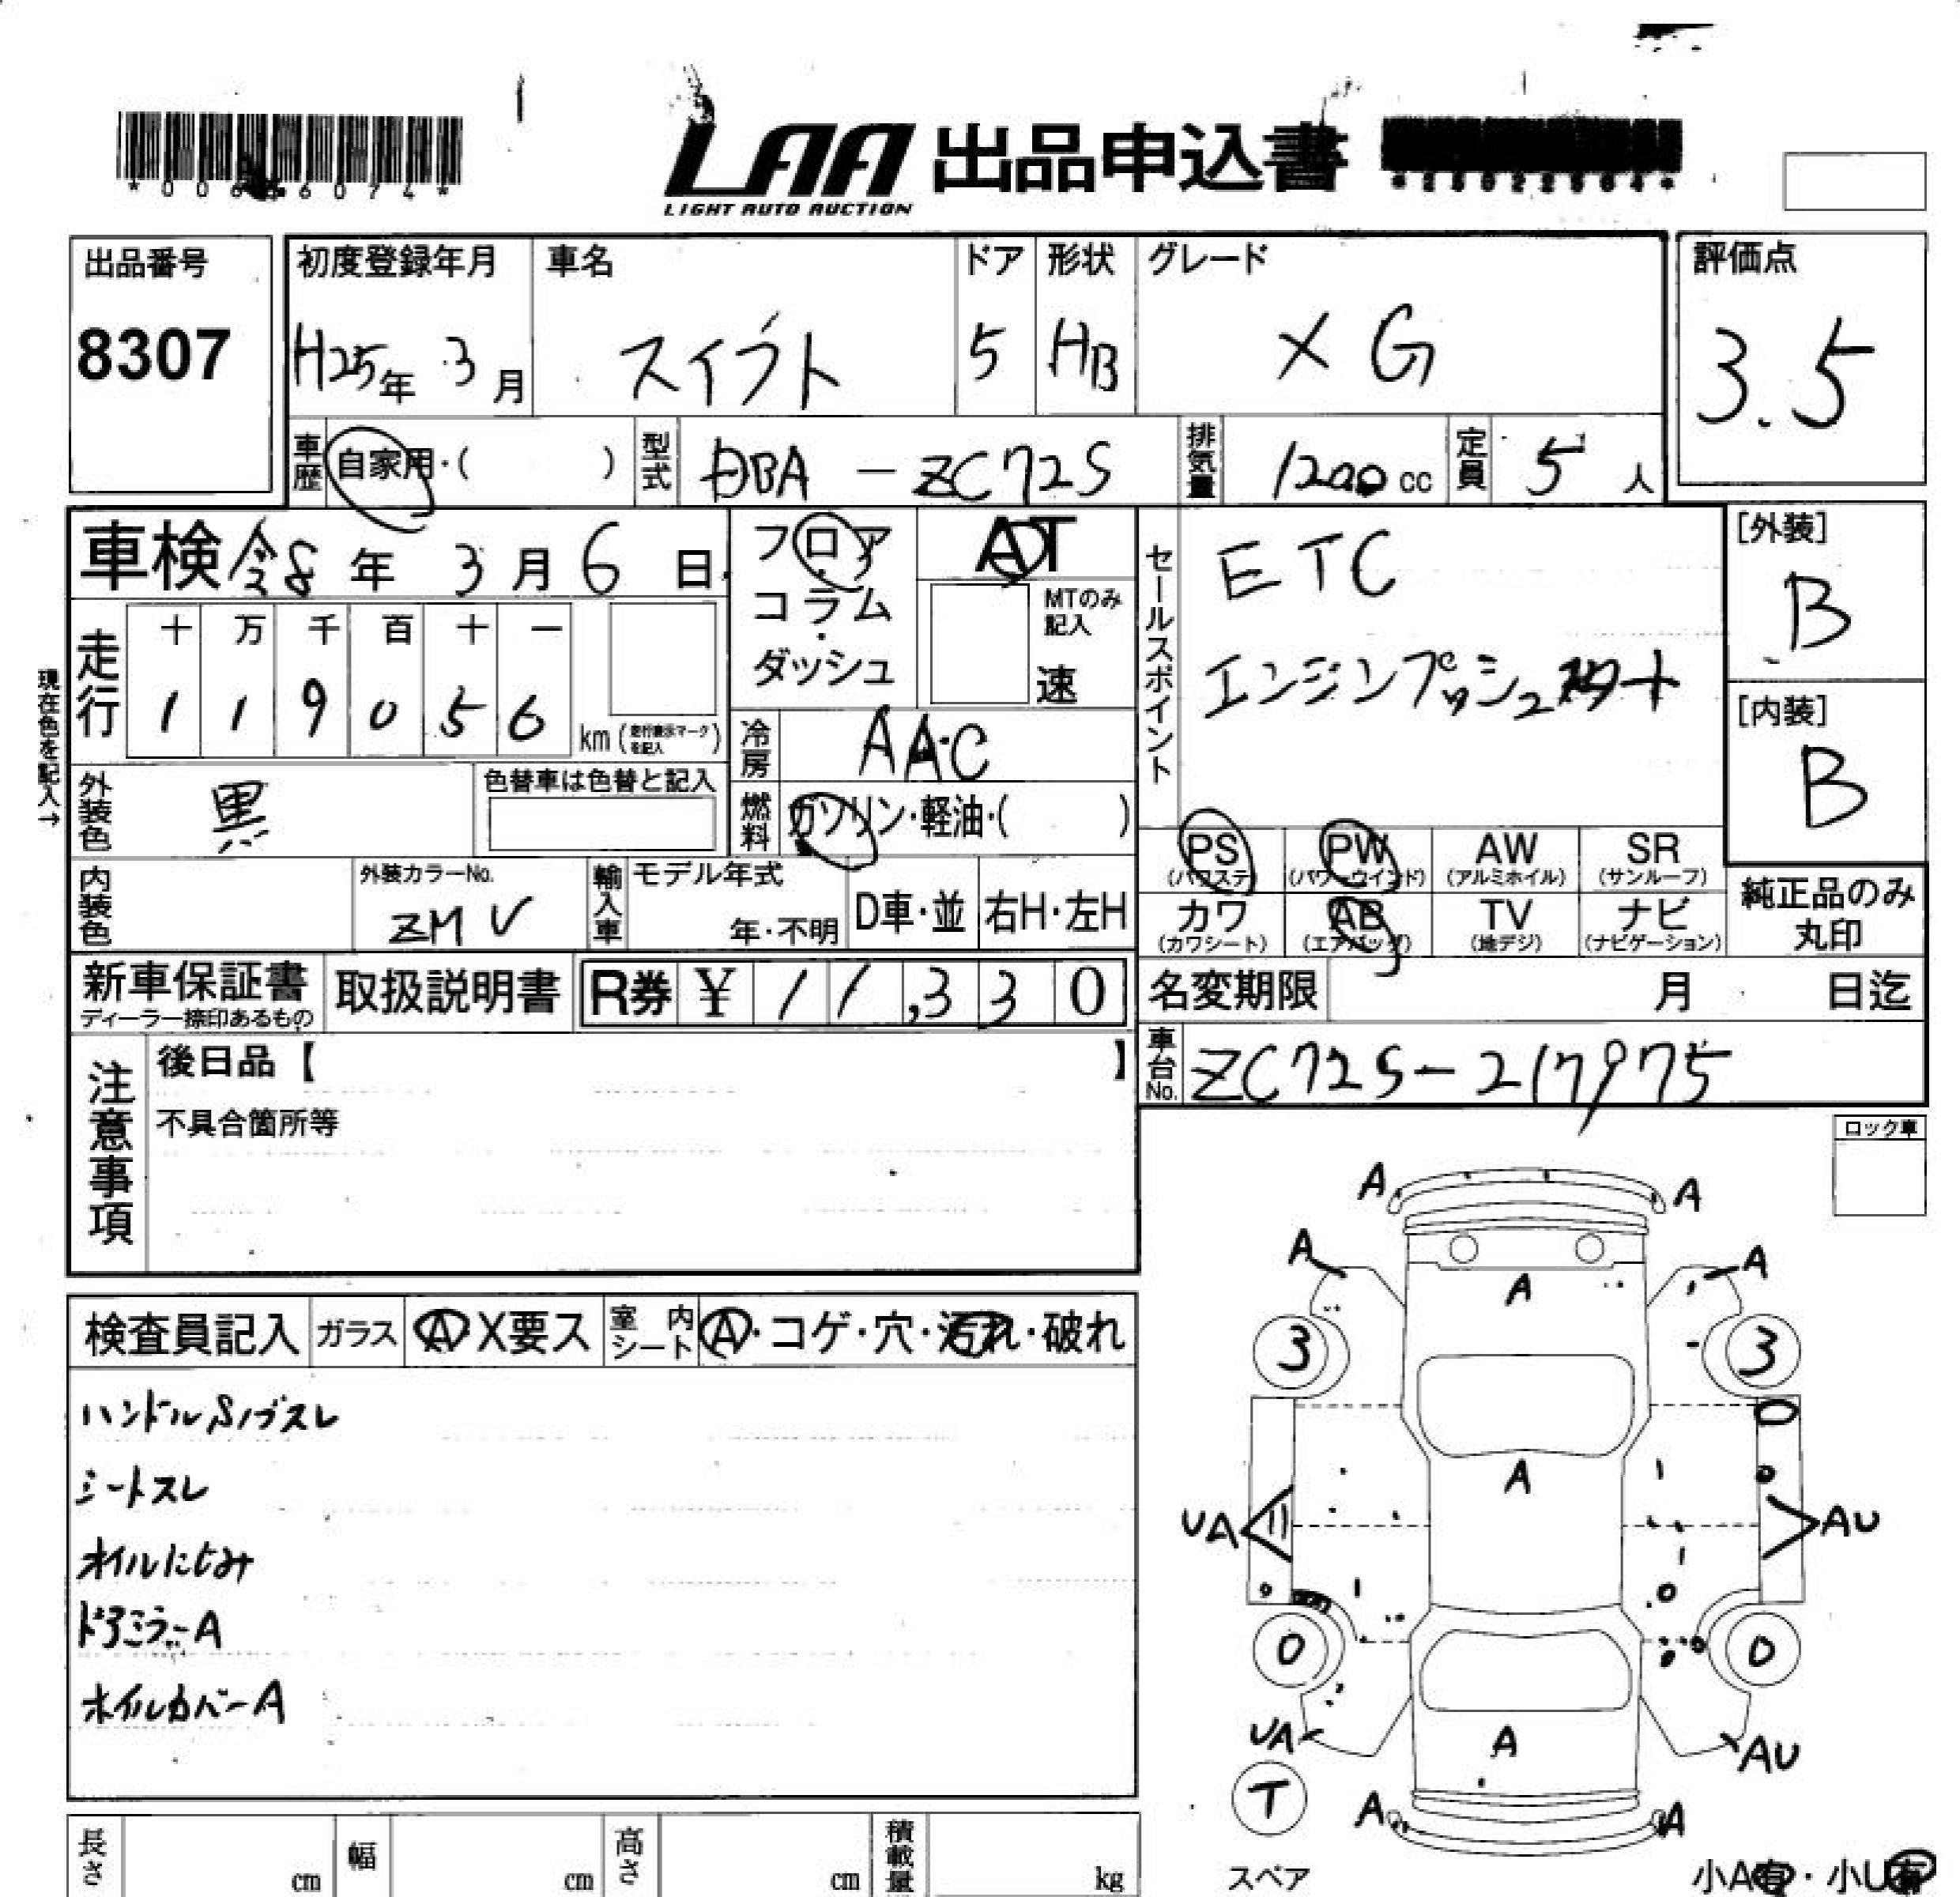 LAA 出品申込書
LIGHT AUTO AUCTION
出品番号
8307
初度登録年月 車名 ドア 形状 グレード
H25年 3月 スイフト 5 HB XG
評価点
3.5
車歴 自家用・( ) 型式 DBA - ZC72S 排気量 1200 cc 定員 5 人
車検 令8年 3月 6日
フロア・コラム・ダッシュ
AT
MTのみ記入
速
セールスポイント
ETC
エンジンプッシュ
[外装]
B
[内装]
B
現在色を記入→
走行 十 万 千 百 十 一
1 1 9 0 5 6 km (走行表示マークを記入)
冷房 AAC
外装色 黒 色替車は色替と記入
燃料 ガソリン・軽油・( )
PS (パワステ) PW (パワーウインド) AW (アルミホイル) SR (サンルーフ)
カワ (カワシート) AB (エアバッグ) TV (地デジ) ナビ (ナビゲーション)
純正品のみ
丸印
内装色 外装カラーNo.
ZMV
輸入車 モデル年式
年・不明 D車・並 右H・左H
新車保証書 取扱説明書 R券 ¥ 11,330
ディーラー捺印あるもの
名変期限 月 日迄
車台No. ZC72S-217975
注意事項
後日品【 】
不具合箇所等
ロック車
検査員記入 ガラス A X要ス 室内シート A・コゲ・穴・汚れ・破れ
ハンドルSノブスレ
シートスレ
オイルにじみ
ドアミラーA
ホイルカバーA
A A
A A
A
3 3
A
UA AU
0 0
UA A AU
T
A A
スペア
小A有・小U有
長さ cm 幅 cm 高さ cm 積載量 kg